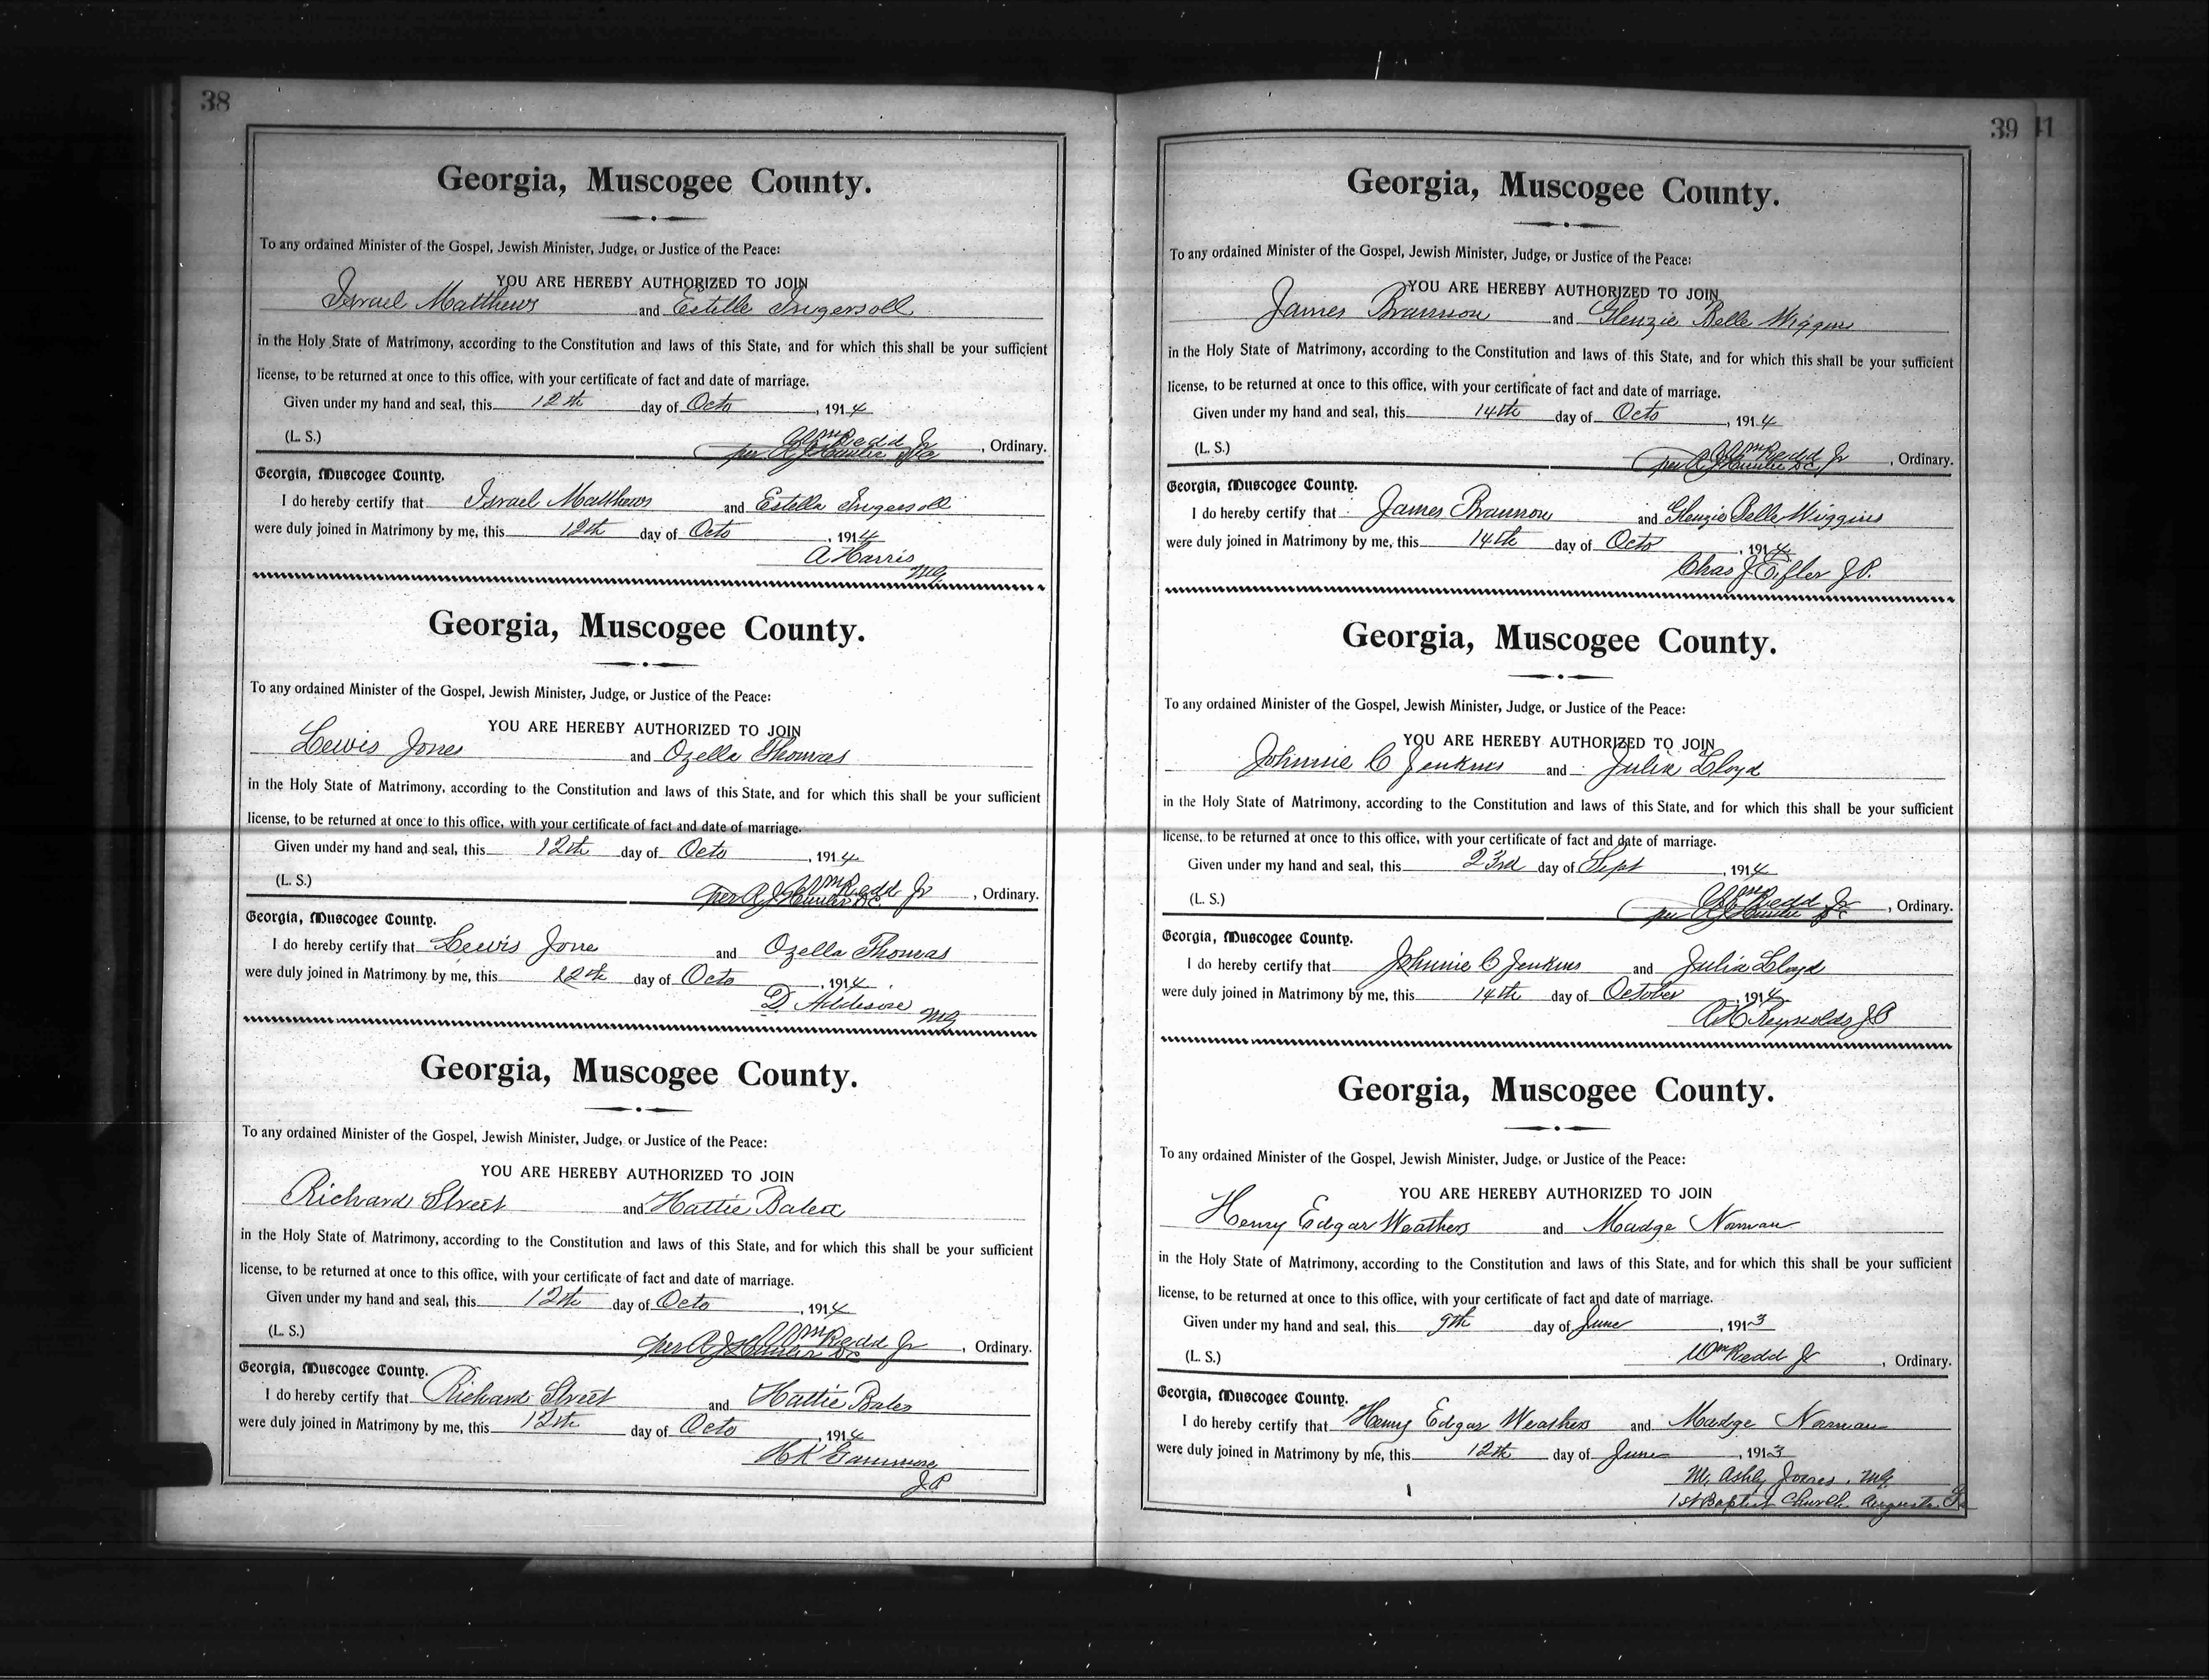 38
Georgia, Muscogee County.
To any ordained Minister of the Gospel, Jewish Minister, Judge, or Justice of the Peace:
YOU ARE HEREBY AUTHORIZED TO JOIN
Israel Matthews and Estelle Ingersoll
in the Holy State of Matrimony, according to the Constitution and laws of this State, and for which this shall be your sufficient
license, to be returned at once to this office, with your certificate of fact and date of marriage.
Given under my hand and seal, this 12th day of Octo, 1914
(L. S.) Wm Redd Jr, Ordinary.
per
Georgia, Muscogee County.
I do hereby certify that Israel Matthews and Estella Ingersoll
were duly joined in Matrimony by me, this 12th day of Octo, 1914
A Harris
MG
Georgia, Muscogee County.
To any ordained Minister of the Gospel, Jewish Minister, Judge, or Justice of the Peace:
YOU ARE HEREBY AUTHORIZED TO JOIN
Lewis Jones and Ozella Thomas
in the Holy State of Matrimony, according to the Constitution and laws of this State, and for which this shall be your sufficient
license, to be returned at once to this office, with your certificate of fact and date of marriage.
Given under my hand and seal, this 12th day of Octo, 1914
(L. S.) Wm Redd Jr, Ordinary.
per
Georgia, Muscogee County.
I do hereby certify that Lewis Jone and Ozella Thomas
were duly joined in Matrimony by me, this 12th day of Octo, 1914.
D. Addison MG
Georgia, Muscogee County.
To any ordained Minister of the Gospel, Jewish Minister, Judge, or Justice of the Peace:
YOU ARE HEREBY AUTHORIZED TO JOIN
Richard Street and Hattie Bales
in the Holy State of Matrimony, according to the Constitution and laws of this State, and for which this shall be your sufficient
license, to be returned at once to this office, with your certificate of fact and date of marriage.
Given under my hand and seal, this 12th day of Octo, 1914
(L. S.) Wm Redd Jr, Ordinary.
per
Georgia, Muscogee County.
I do hereby certify that Richard Street and Hattie Bales
were duly joined in Matrimony by me, this 12th day of Octo, 1914
H K Gammon
J.P.
39 41
Georgia, Muscogee County.
To any ordained Minister of the Gospel, Jewish Minister, Judge, or Justice of the Peace:
YOU ARE HEREBY AUTHORIZED TO JOIN
James Brannon and Glenzie Belle Wiggins
in the Holy State of Matrimony, according to the Constitution and laws of this State, and for which this shall be your sufficient
license, to be returned at once to this office, with your certificate of fact and date of marriage.
Given under my hand and seal, this 14th day of Octo, 1914
(L. S.) Wm Redd Jr, Ordinary.
per
Georgia, Muscogee County.
I do hereby certify that James Brannon and Glenzie Belle Wiggins
were duly joined in Matrimony by me, this 14th day of Octo, 1914
Chas J Eifler J.P.
Georgia, Muscogee County.
To any ordained Minister of the Gospel, Jewish Minister, Judge, or Justice of the Peace:
YOU ARE HEREBY AUTHORIZED TO JOIN
Johnnie C Jenkins and Julia Lloyd
in the Holy State of Matrimony, according to the Constitution and laws of this State, and for which this shall be your sufficient
license, to be returned at once to this office, with your certificate of fact and date of marriage.
Given under my hand and seal, this 23rd day of Sept, 1914
(L. S.) Wm Redd Jr, Ordinary.
per
Georgia, Muscogee County.
I do hereby certify that Johnnie C Jenkins and Julia Lloyd
were duly joined in Matrimony by me, this 14th day of October, 1914
A H Reynolds J P
Georgia, Muscogee County.
To any ordained Minister of the Gospel, Jewish Minister, Judge, or Justice of the Peace:
YOU ARE HEREBY AUTHORIZED TO JOIN
Henry Edgar Weathers and Madge Norman
in the Holy State of Matrimony, according to the Constitution and laws of this State, and for which this shall be your sufficient
license, to be returned at once to this office, with your certificate of fact and date of marriage.
Given under my hand and seal, this 9th day of June, 1913
(L. S.) Wm Redd Jr, Ordinary.
Georgia, Muscogee County.
I do hereby certify that Henry Edgar Weathers and Madge Norman
were duly joined in Matrimony by me, this 12th day of June, 1913
M. Ashby Jones, MG
1st Baptist Church Augusta Ga